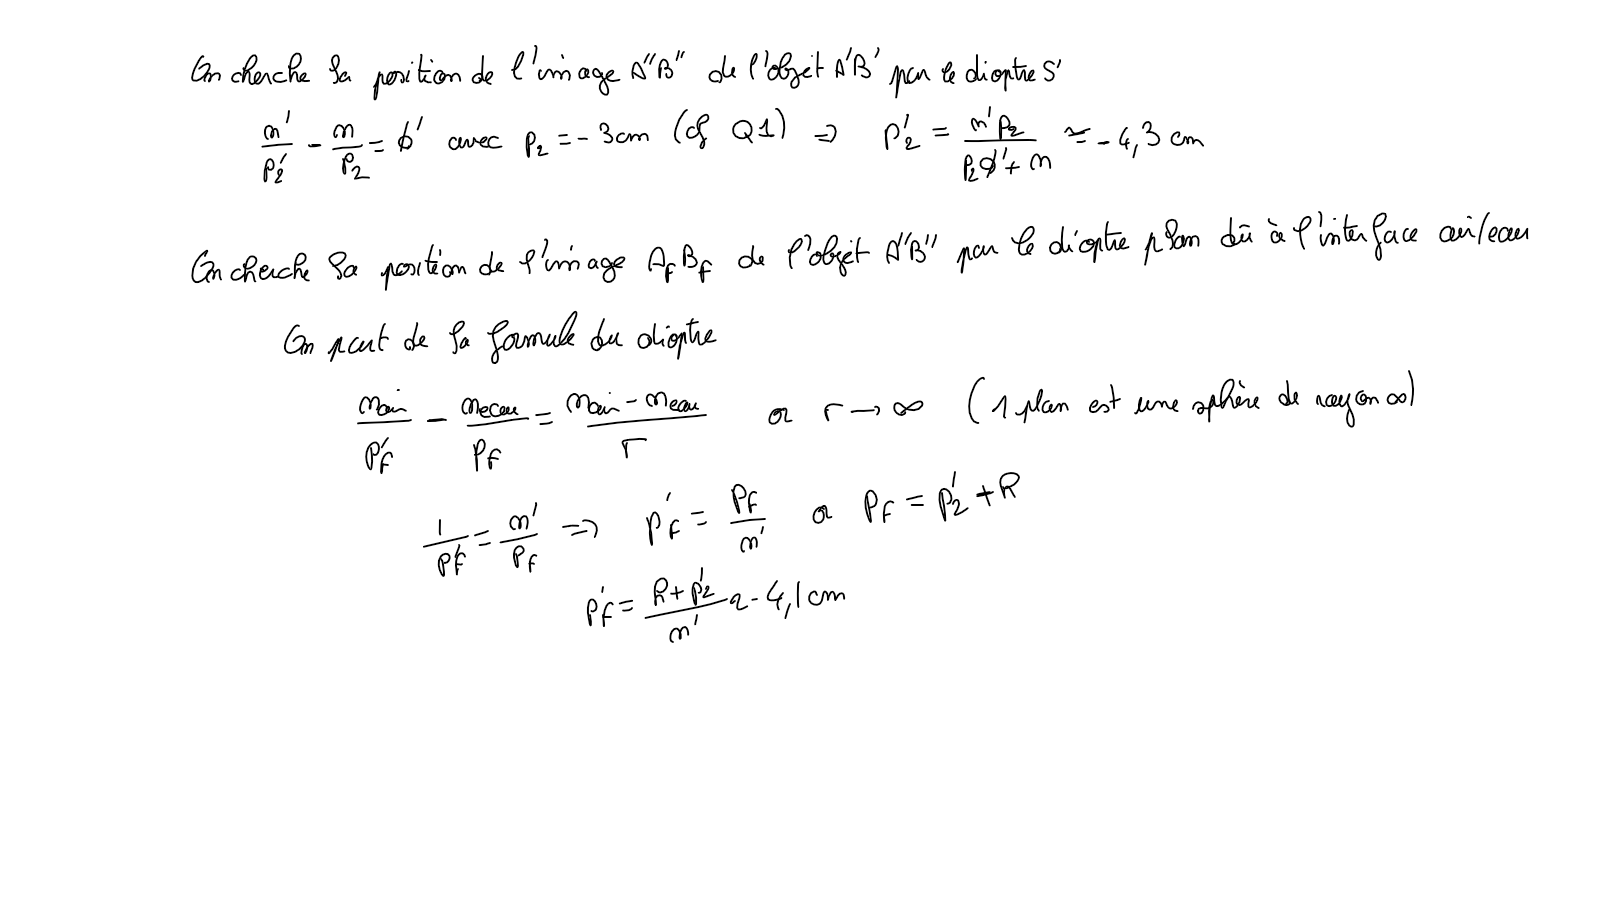 On cherche la position de l'image A"B" de l'objet A'B' par le dioptre S'
n'/p₂' - n/p₂ = ϕ' avec p₂ = - 3cm (cf Q1) ⇒ p₂' = n'p₂/(p₂ϕ'+n) ≃ - 4,3 cm
On cherche la position de l'image A_f B_f de l'objet A"B" par le dioptre plan dû à l'interface air/eau
On part de la formule du dioptre
n_air/p_f' - n_eau/p_f = (n_air - n_eau)/r or r → ∞ (1 plan est une sphère de rayon ∞)
1/p_f' = n'/p_f ⇒ p_f' = p_f/n' or p_f = p₂' + R
p_f' = (R + p₂')/n' ≃ - 4,1 cm